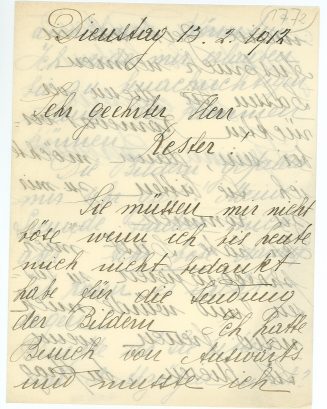 1772
Dienstag 13. 2. 1912
Sehr geehrter Herr
Kester!
Sie müssen mir nicht
böse wenn ich bis heute
mich nicht bedankt
habe für die Sendung
der Bildern ich hatte
Besuch von Auswärts
und musste ich